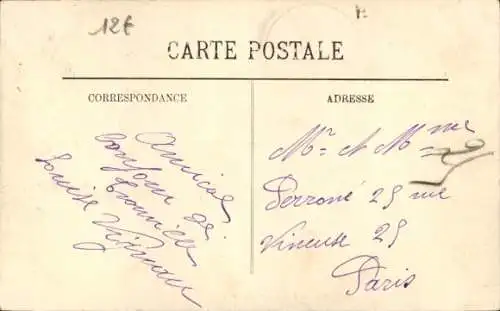 12f
CARTE POSTALE
CORRESPONDANCE
ADRESSE
Amical
bonjour de
Louise
Mr et Mme
Perroné 25 rue
Vineuse 25
Paris